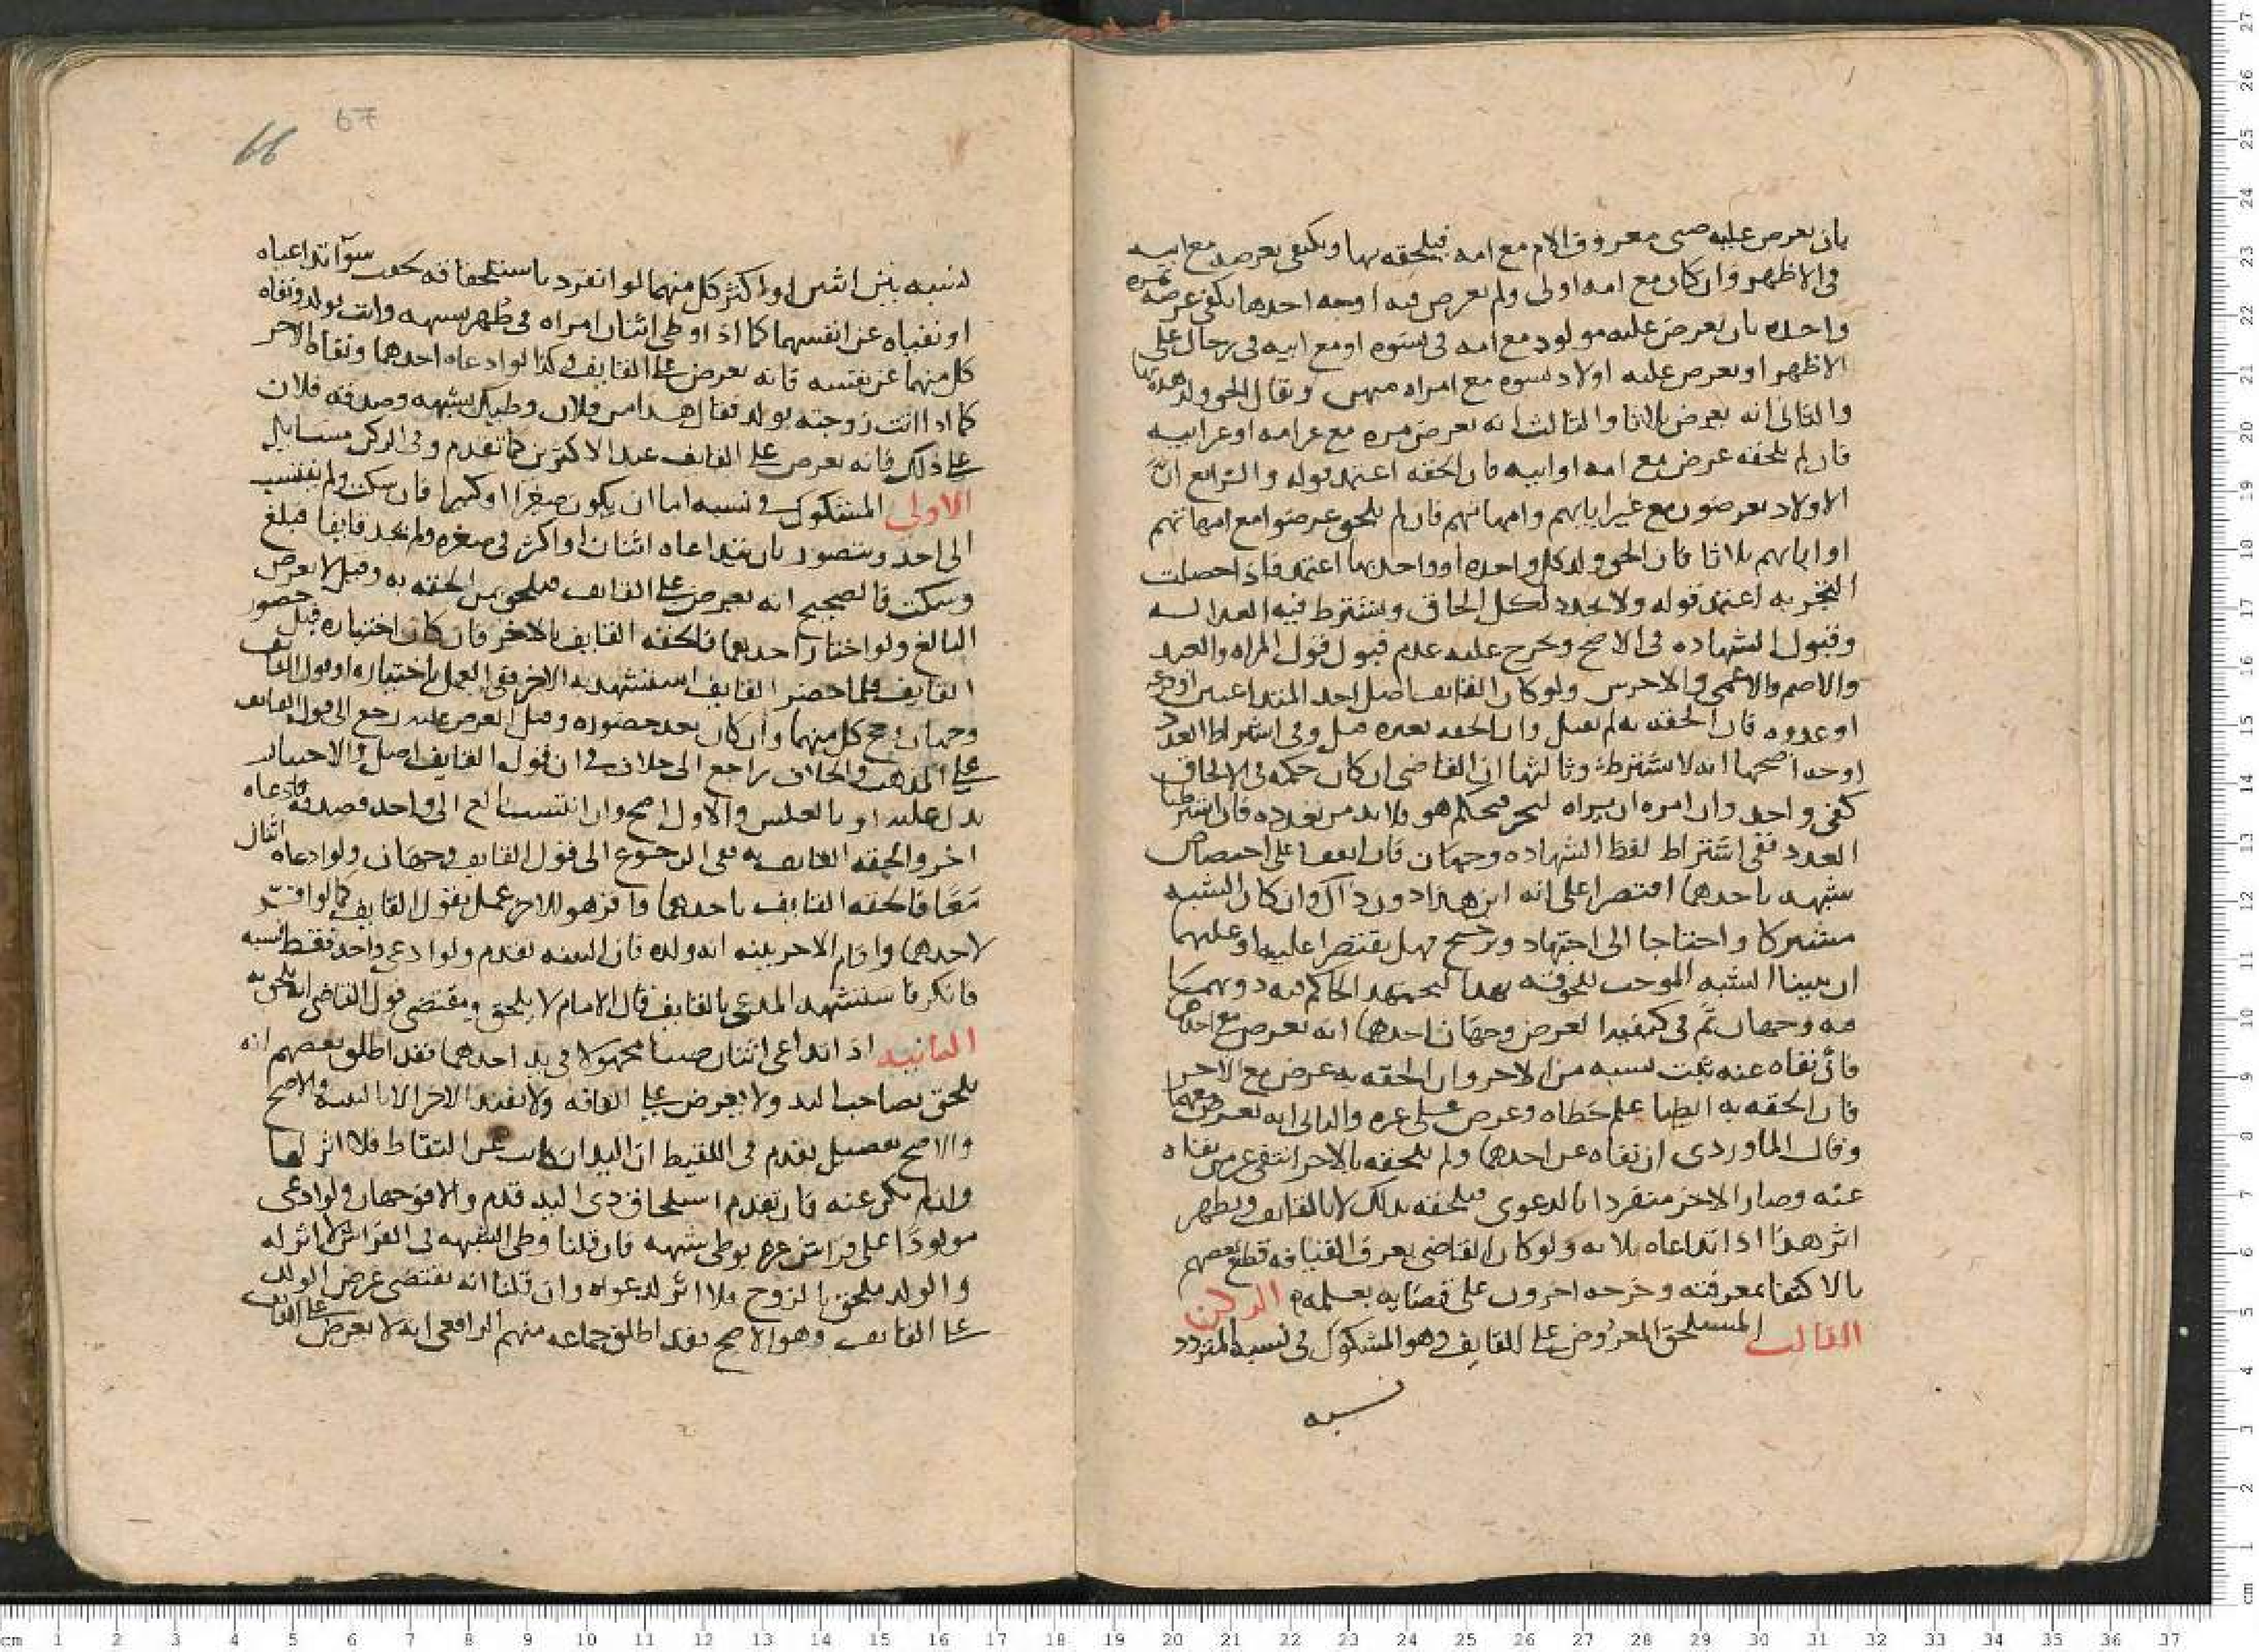 بان يعرض عليه صبي معروف الام مع امه فيلحقه بها ويكتفي بعرضه مع ابيه
في الاظهر وان كان مع امه اولى ولم يعرض فيه اوجه احدها يكفي عرضه مره
واحده بان يعرض عليه مولود مع امه في نسوه او مع ابيه في رجال على
الاظهر او يعرض عليه اولاد نسوه مع امراه منهن ويقال الحق ولد هذه بها
والثاني انه يعرض ثلاثا والثالث انه يعرض مره مع غير امه او غير ابيه
فان لم يلحقه عرض مع امه او ابيه فان الحقه اعتمد قوله والرابع ان
الاولاد يعرضون مع غير ابايهم وامهاتهم فان لم يلحق عرضوا مع امهاتهم
او ابايهم ثلاثا فان الحق ولد كل واحده او واحد بها اعتمد فاذا حصلت
التجربه اعتمد قوله ولا يجدد لكل الحاق ويشترط فيه العداله
وقبول الشهاده في الاصح ويخرج عليه عدم قبول قول المراه والعبد
والاصم والاعمى والاخرس ولو كان القايف اصل احد المتداعيين او فرعه
او عدوه فان الحقه به لم يقبل وان الحقه بغيره قبل وفي اشتراط العدد
اوجه اصحها انه لا يشترط وثالثها ان القاضي ان كان حكمه في الالحاق
كفى واحد وان امره ان يراه ليحكم هو فلا بد من تعدده فان اشترطنا
العدد ففي اشتراط لفظ الشهاده وجهان فان اتفقا على اختصاص
شبهه باحدهما اقتصرا على انه ابن هذا دون ذاك وان كان الشبه
مشتركا واحتاجا الى اجتهاد وترجيح فهل يقتصرا عليه او عليهما
ان يبينا الشبه الموجب للحوقه بهذا ليجتهد الحاكم فيه دونهما
فيه وجهان ثم في كيفيه العرض وجهان احدهما انه يعرض مع احدهما
فان نفاه عنه ثبت نسبه من الاخر وان الحقه به عرض مع الاخر
فان الحقه به ايضا علم خطاه وعرض على غيره والثاني انه يعرض معهما
وقال الماوردي ان نفاه عن احدهما ولم يلحقه بالاخر انتفى عن من نفاه
عنه وصار الاخر منفردا بالدعوى فيلحقه بذلك لا بالقايف ويظهر
اثر هذا اذا تداعاه ثلاثه ولو كان القاضي يعرف القيافه قطع بعضهم
بالاكتفا بمعرفته وخرجه اخرون على قضايه بعلمه الركن
الثالث المستلحق المعروض على القايف وهو المشكوك في نسبه المتردد
نسبه
66
67
نسبه بين اثنين او اكثر كل منهما لو انفرد باستلحاقه لحقه سوآ تداعياه
او نفياه عن انفسهما كما اذا وطي اثنان امراه في طهر بشبهه واتت بولد ونفاه
كل منهما عن نفسه فانه يعرض على القايف وكذا لو ادعاه احدهما ونفاه الاخر
كما اذا اتت زوجته بولد فقال هذا من فلان وطيك بشبهه وصدقه فلان
على ذلك فانه يعرض على القايف عند الاكثرين كما تقدم وفي الركن مسايل
الاولى المشكوك في نسبه اما ان يكون صغيرا او كبيرا فان سكت ولم ينتسب
الى احد ويتصور بان يتداعاه اثنان او اكثر في صغره ولم نجد قايفا فبلغ
وسكت فالصحيح انه يعرض على القايف فيلحق بمن الحقه به وقيل لا يعرض
البالغ ولو اختار احدهما فالحقه القايف بالاخر فان كان اختياره قبل حضور
القايف فلما حضر القايف استشهد به الاخر ففي العمل باختياره او قول القايف
وجهان رجح كل منهما وان كان بعد حضوره وقبل العرض عليه رجع الى قول القايف
على المذهب والخلاف راجع الى خلاف في ان قول القايف اصل والاختيار
بدل عليه او بالعكس والاول اصح وان انتسب بالغ الى واحد فصدقه فادعاه
اخر والحقه القايف به ففي الرجوع الى قول القايف وجهان ولو ادعاه اثنان
معا فالحقه القايف باحدهما واقر هو للاخر عمل بقول القايف كما لو اقر
لاحدهما واقام الاخر بينه انه ولده فان البينه تقدم ولو ادعى واحد فقط نسبه
فانكر فاستشهد المدعي بالقايف قال الامام لا يلحق ومقتضى قول القاضي انه يلحق به
الثانيه اذا تداعى اثنان صبيا مجهولا في يد احدهما فقد اطلق بعضهم انه
يلحق بصاحب اليد ولا يعرض على القافه ولا يفيد الاخر الا بالبينه والاصح
والاصح تفصيل تقدم في اللقيط ان اليد ان كانت عن التقاط فلا اثر لها
وان لم تكن عنه فان تقدم استلحاق ذي اليد قدم والا فوجهان ولو ادعى
مولودا على فراش غيره بوطي شبهه فان قلنا وطي الشبهه في الفراش لا اثر له
والولد يلحق بالزوج فلا اثر لدعواه وان قلنا انه يقتضي عرض الولد
على القايف وهو الاصح فقد اطلق جماعه منهم الرافعي انه لا يعرض على القايف